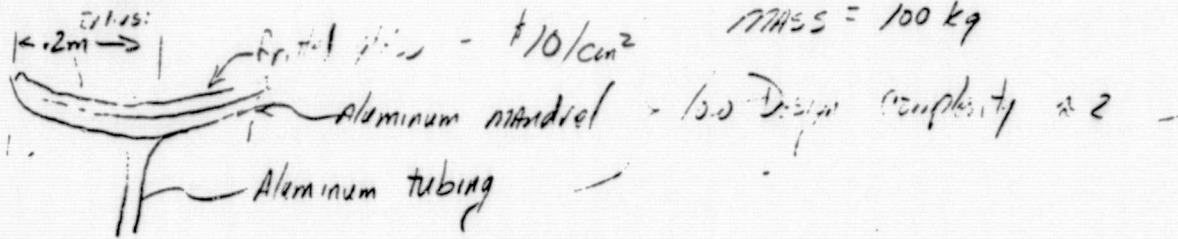 radius:
.2m
$10/cm² MASS = 100 kg
Aluminum mandrel - 100 Design complexity ≈ 2
Aluminum tubing